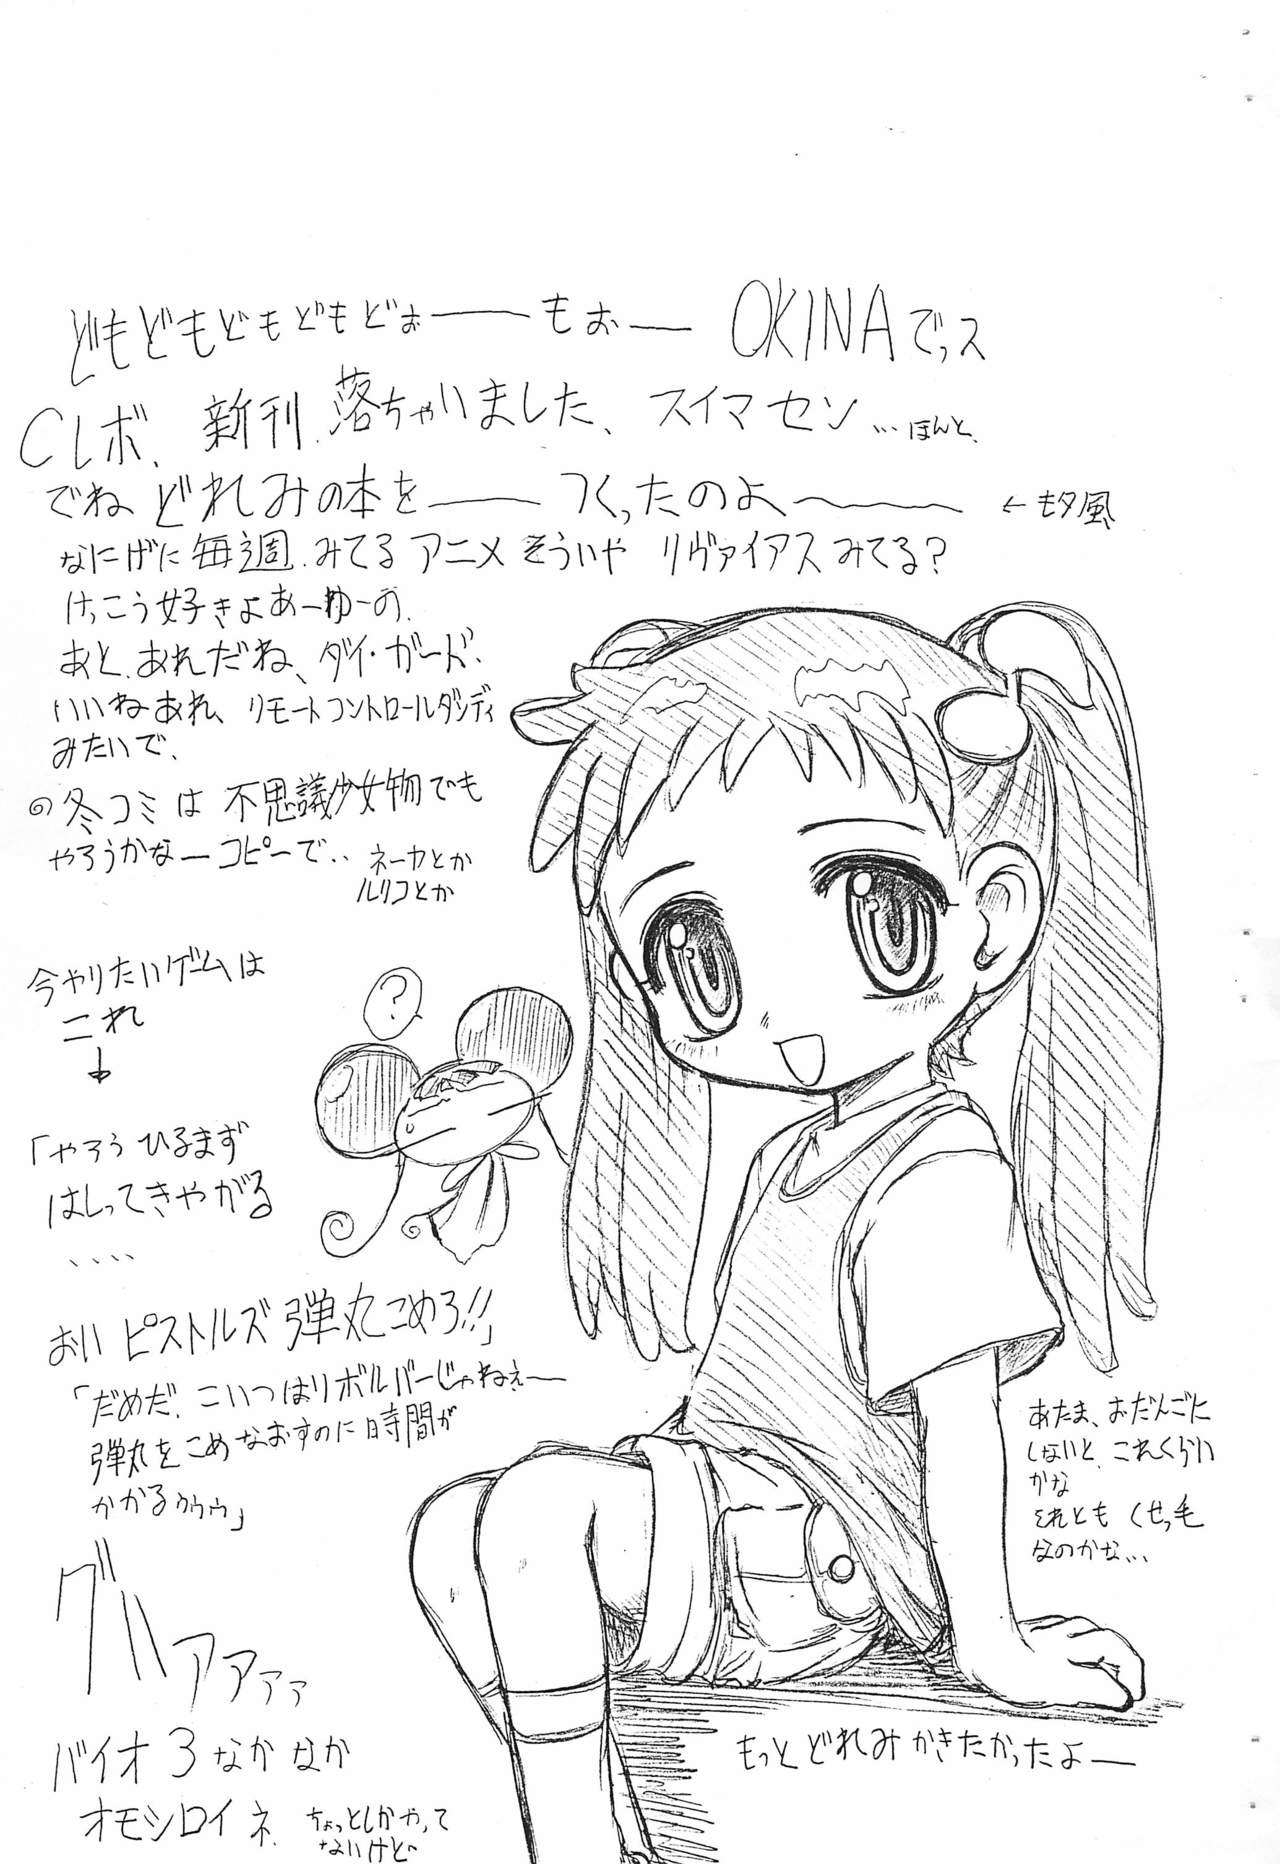 どもどもどもどもどぉーーもぉー OKINAでっス
CLボ、新刊、落ちゃいました、スイマセン…ほんと、
でね どれみの本をーーつくったのよ〜〜 ←もタ風
なにげに毎週、みてるアニメ そういや リヴァイアスみてる?
けっこう好きよあーゆーの、
あと、あれだね、ダイ・ガード、
いいねあれ、リモートコントロールダンディ
みたいで、
の冬コミは不思議少女物でも
やろうかなーコピーで‥ ネーカとか
ルリコとか
今やりたいゲームは
これ
↓
?
「やろう ひるまず
はしってきやがる
、、、、
おい ピストルズ 弾丸こめろ!!」
「だめだ、こいつはリボルバーじゃねぇー
弾丸をこめなおすのに時間が
かかるゥゥゥ」
グハァアァァ
バイオ3なかなか
オモシロイネ、ちょっとしかやって
ないけど
あたま、おだんごに
しないと、これくらい
かな
それとも くせっ毛
なのかな…
もっとどれみかきたかったよー